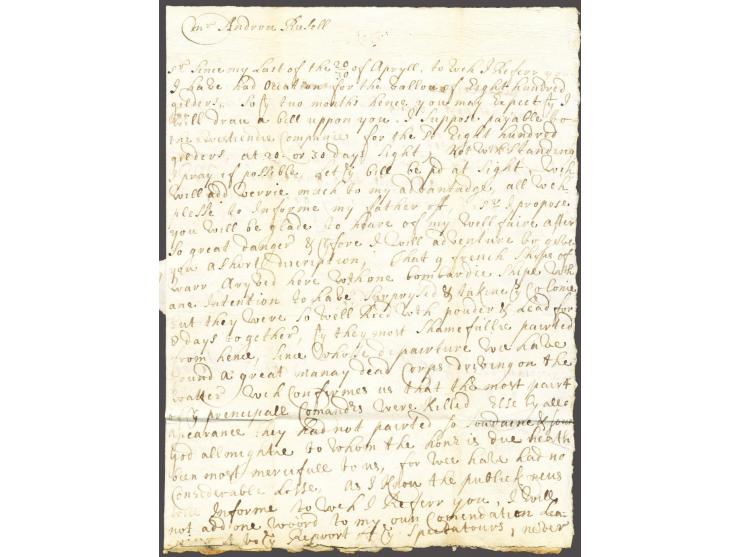 Mr Andrew Rusell
Sr Since my Last of the 20/30 of Apryll, to wch I Referr
I have had Ocation for the vallow of Eight hundred
gilders, So yt two months hence you may Expect yt I
will draw a bill uppon you. I Suppos payable to
the Companie for the sd Eight hundred
gilders, at 20 or 30 days Sight, Not withstanding
I pray if possible Let ye bill be pd at Sight, wch
will add verrie much to my advantadge, all wch
plesse to Informe my father of. Sr I propose
you will be glade to heare of my wellfaire after
So great danger & yrfore I will adventure to give
you a short discription, That 9 french Shyps of
warr Aryved here with one bombardie Shipe with
ane Intention to have Surprysed & taken ye Colonie
but they were So well with pouder & Lead for
8 days together, yt they most Shamefullie pairted
from hence, Since whose depairture we have
found a great manay dead Corps driving on the
watter wch Confirmes us that the most pairt
of ye prencipall Comanders were killed Else by all
apearance they had not pairted So &
God allmightie to whom the honr is due heath
been most mercifull to us, for wee have had no
Considerable Losse, as I know the publick news
will Informe to wch I Referr you, I will
not add one woord to my own Comendation
Repoort of ye Specktatours, never